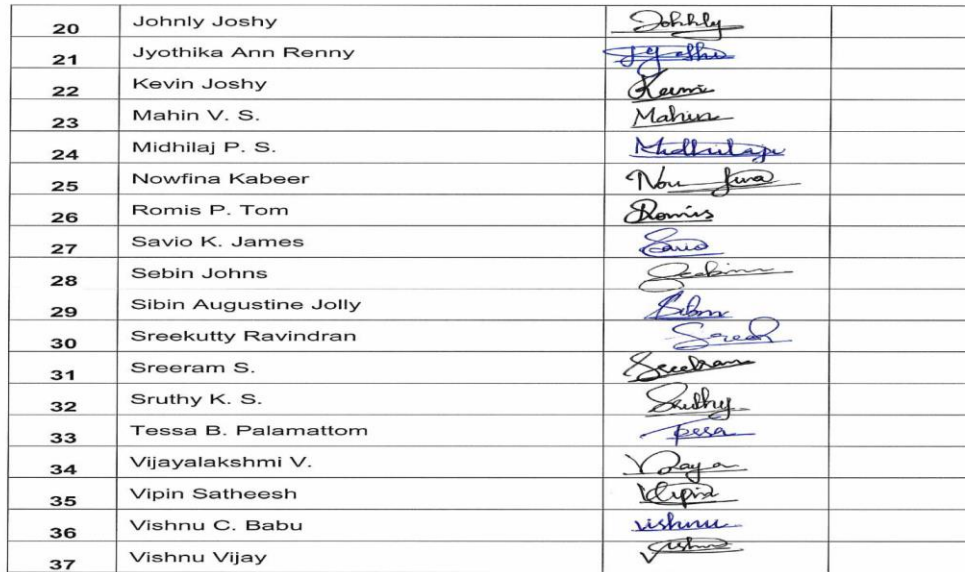 20 Johnly Joshy Johnly
21 Jyothika Ann Renny
22 Kevin Joshy
23 Mahin V. S. Mahin
24 Midhilaj P. S. Midhilaj
25 Nowfina Kabeer Now fina
26 Romis P. Tom Romis
27 Savio K. James Savio
28 Sebin Johns Sebin
29 Sibin Augustine Jolly Sibin
30 Sreekutty Ravindran
31 Sreeram S. Sreeram
32 Sruthy K. S. Sruthy
33 Tessa B. Palamattom Tessa
34 Vijayalakshmi V.
35 Vipin Satheesh Vipin
36 Vishnu C. Babu vishnu
37 Vishnu Vijay Vishnu